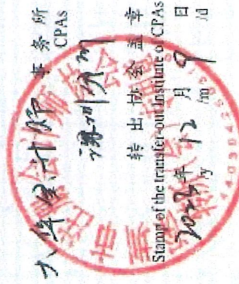 大华会计师 事务所
CPAs
深圳分所
转出协会盖章
Stamp of the transfer-out Institute of CPAs
2023年12月9日
/y /m /d